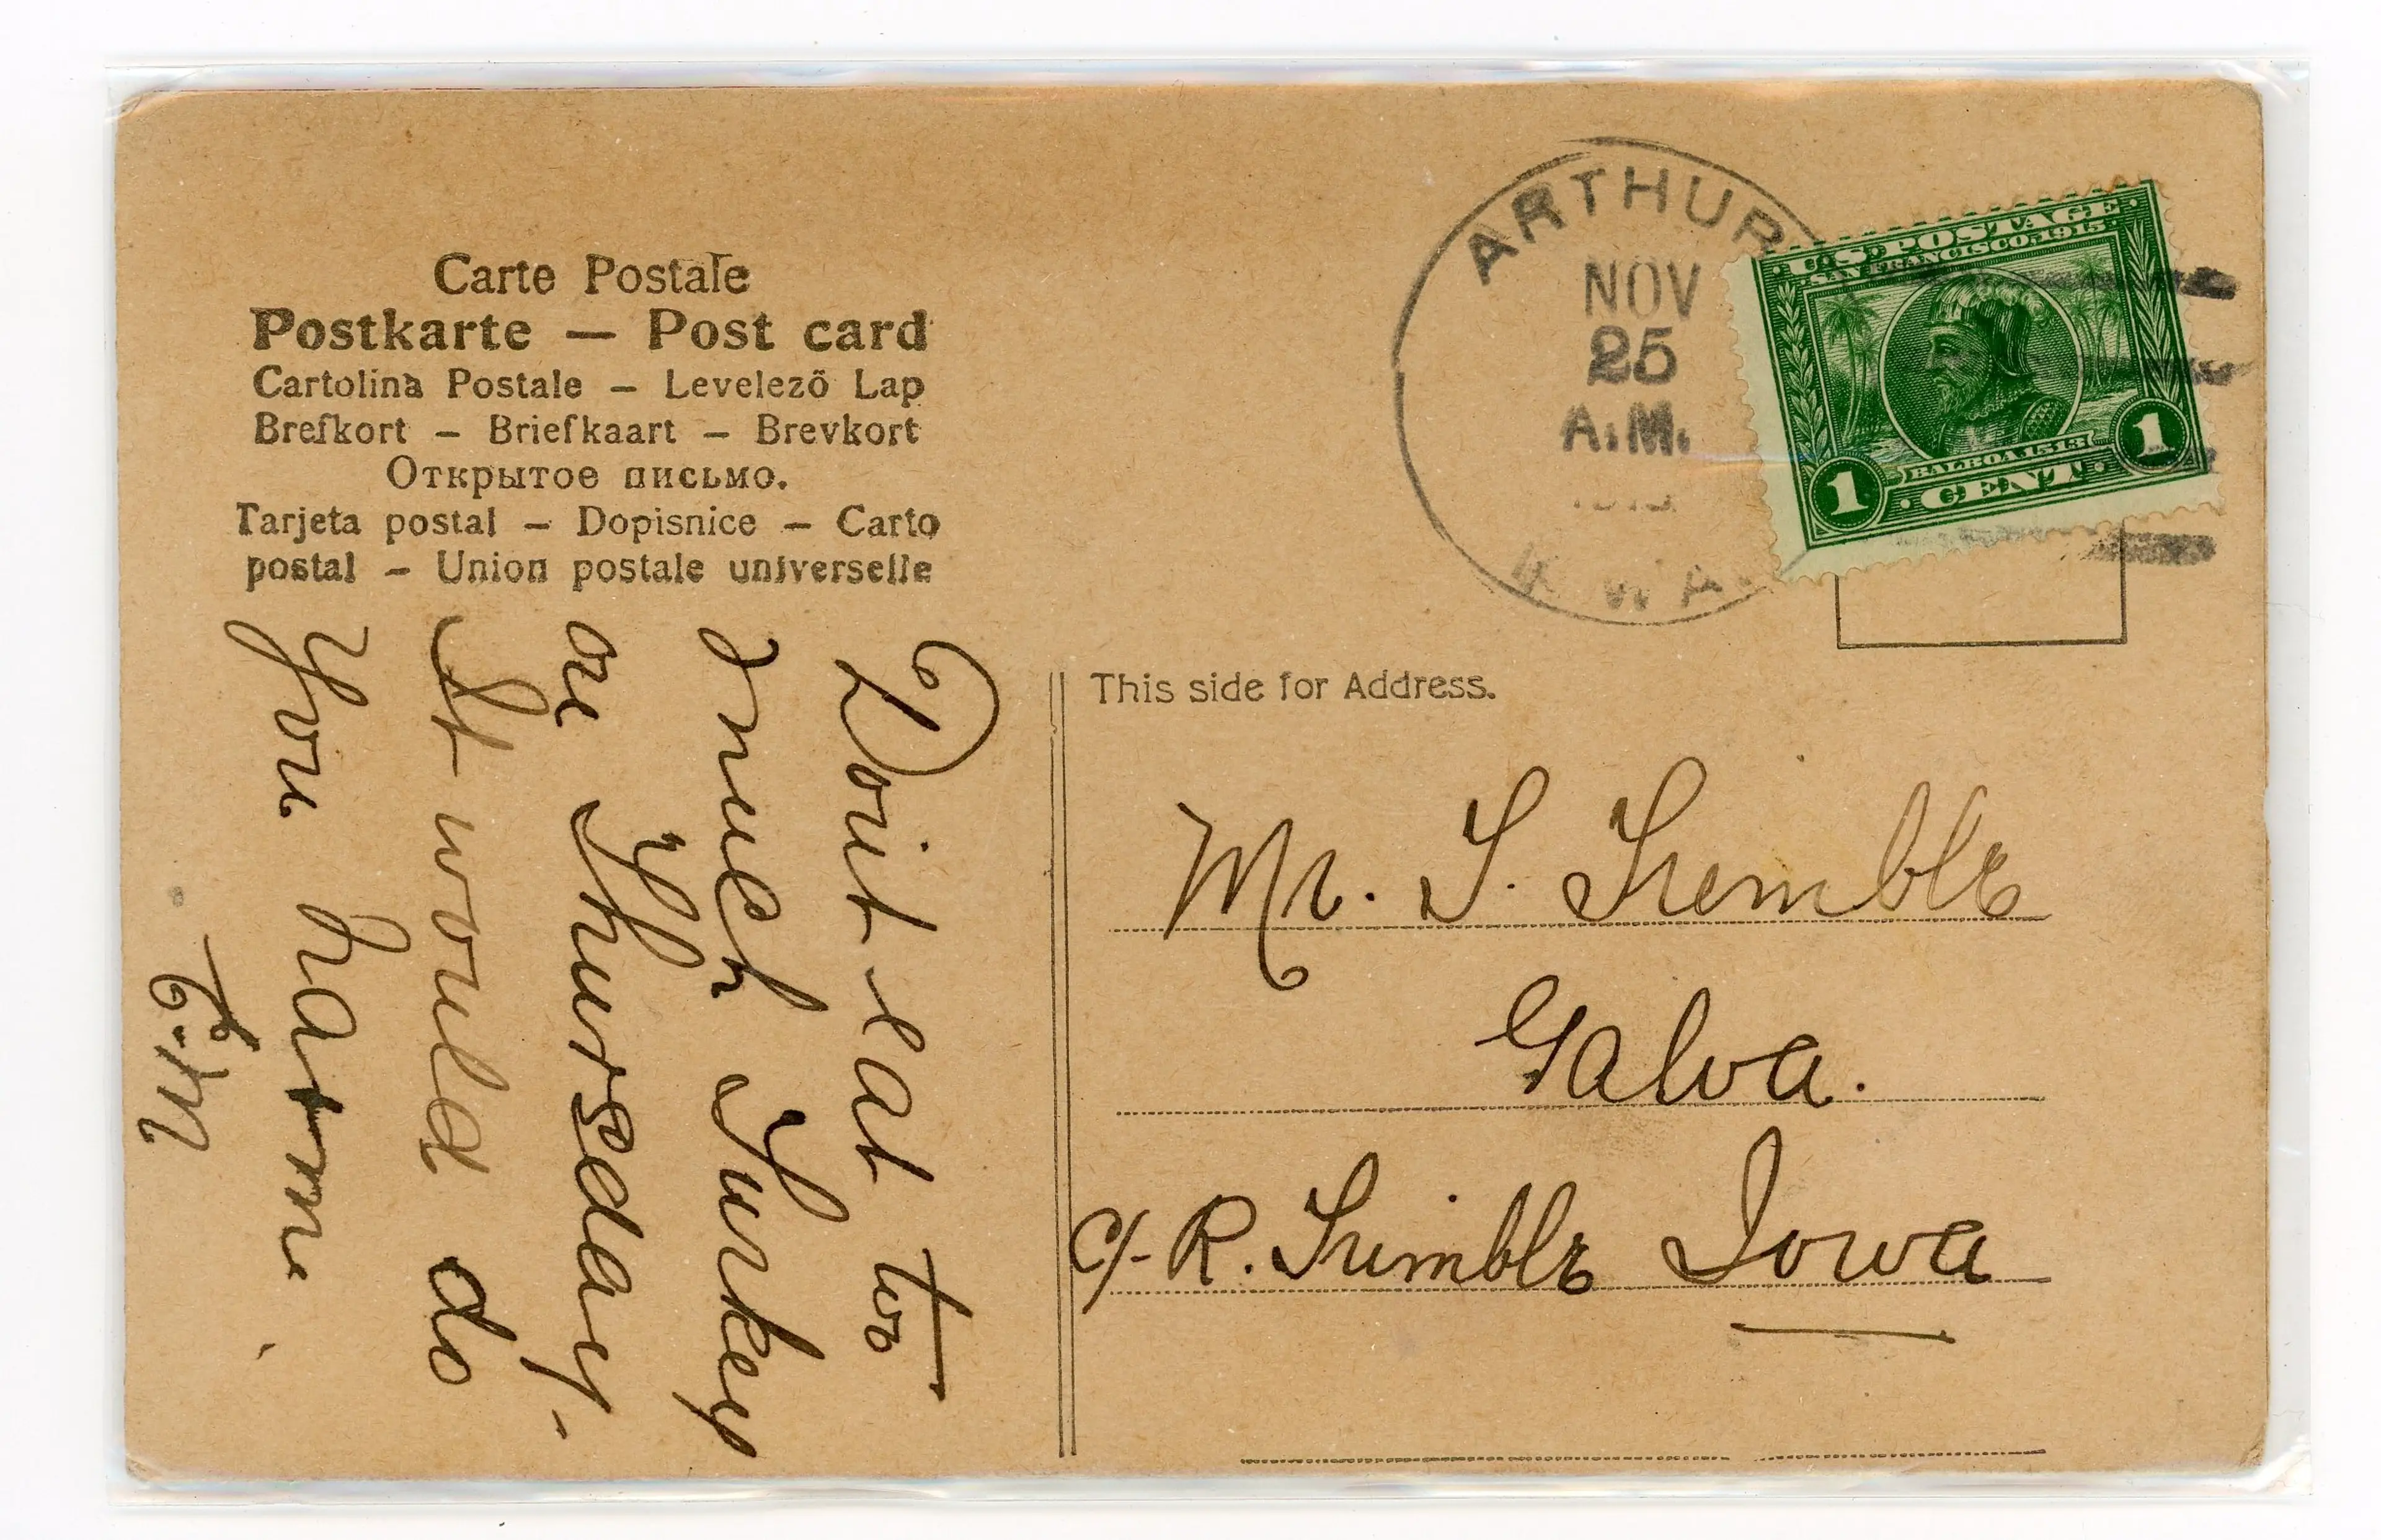 Carte Postale
Postkarte — Post card
Cartolina Postale — Levelező Lap
Brefkort — Briefkaart — Brevkort
Открытое письмо.
Tarjeta postal — Dopisnice — Carto
postal — Union postale universelle
ARTHUR
NOV
25
A.M.
U.S. POSTAGE
SAN FRANCISCO, 1915
BALBOA 1513
1 CENT 1
This side for Address.
Mr. S. Trimble
Galva.
c/- R. Trimble Iowa
Dont eat too
much Turkey
on Thursday.
It would do
you harm.